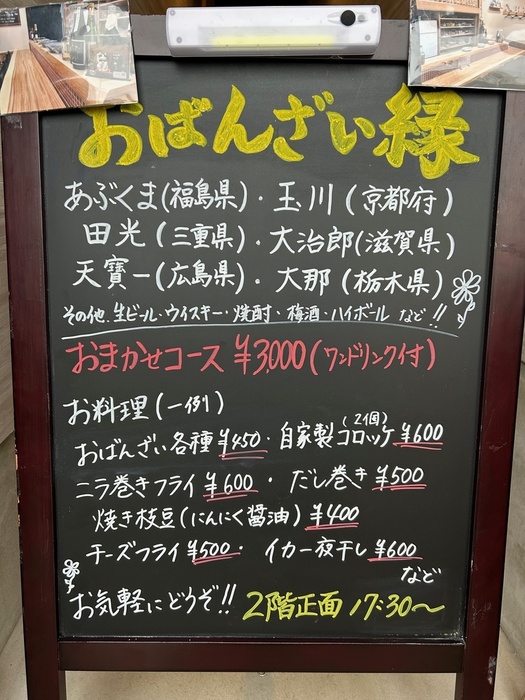 おばんざい縁
あぶくま(福島県)・玉川(京都府)
田光(三重県)・大治郎(滋賀県)
天寶一(広島県)・大那(栃木県)
その他、生ビール・ウイスキー・焼酎・梅酒・ハイボール など!!
おまかせコース ¥3,000(ワンドリンク付)
お料理(一例)
おばんざい各種 ¥450・自家製コロッケ(2個) ¥600
ニラ巻きフライ ¥600・だし巻き ¥500
焼き枝豆(にんにく醤油) ¥400
チーズフライ ¥500・イカ一夜干し ¥600
など
お気軽にどうぞ!! 2階正面 17:30〜